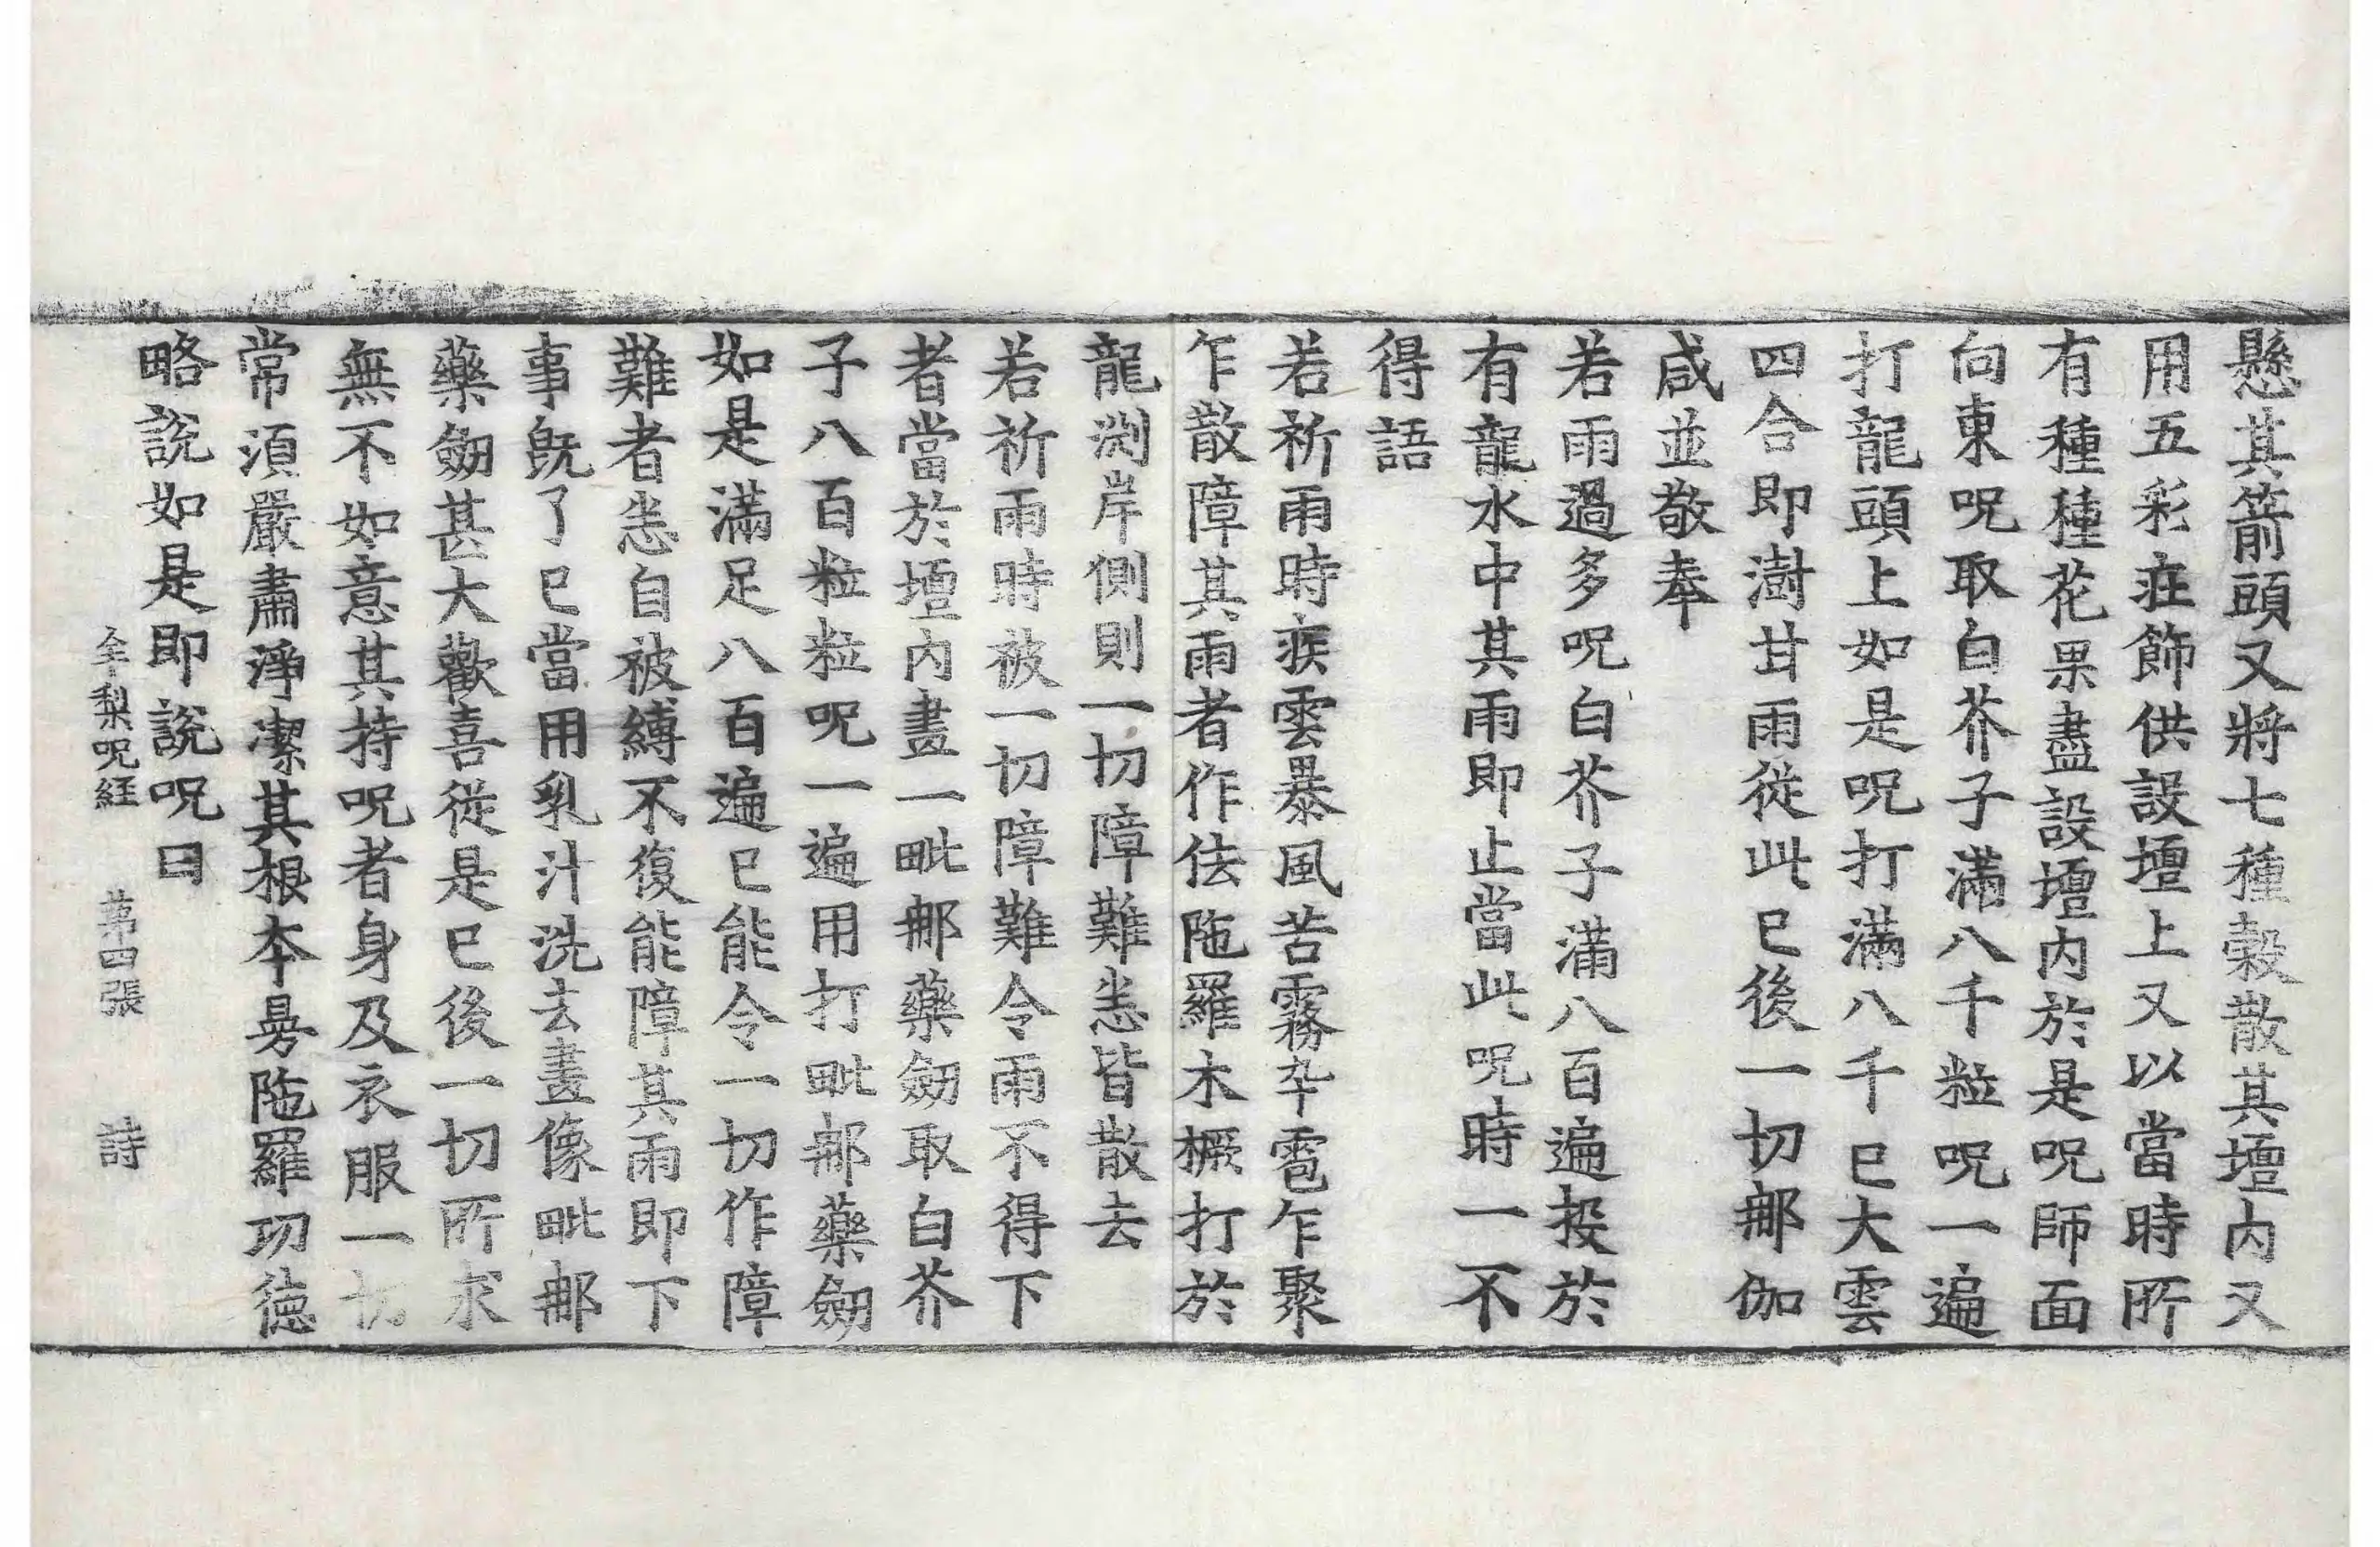 懸其箭頭又將七種穀散其壇內又
用五彩莊飾供設壇上又以當時所
有種種花果盡設壇內於是呪師面
向東呪取白芥子滿八千粒呪一遍
打龍頭上如是呪打滿八千已大雲
四合即澍甘雨從此已後一切那伽
咸並敬奉
若雨過多呪白芥子滿八百遍投於
有龍水中其雨即止當此呪時一不
得語
若祈雨時疾雲暴風苦霧卒雹乍聚
乍散障其雨者作佉陁羅木橛打於
龍渕岸側則一切障難恙皆散去
若祈雨時被一切障難令雨不得下
者當於壇內畫一毗那藥劔取白芥
子八百粒粒呪一遍用打毗那藥劔
如是滿足八百遍已能令一切作障
難者恙自被縛不復能障其雨即下
事旣了已當用乳汁洗去畫像毗那
藥劔甚大歡喜從是已後一切所求
無不如意其持呪者身及衣服一切
常須嚴肅淨潔其根本曼陁羅功德
略說如是即說呪曰
伞梨呪経 苐四張 詩